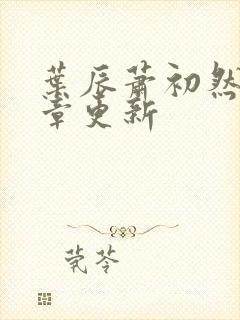 葉辰蕭初然
章更新
莞苓